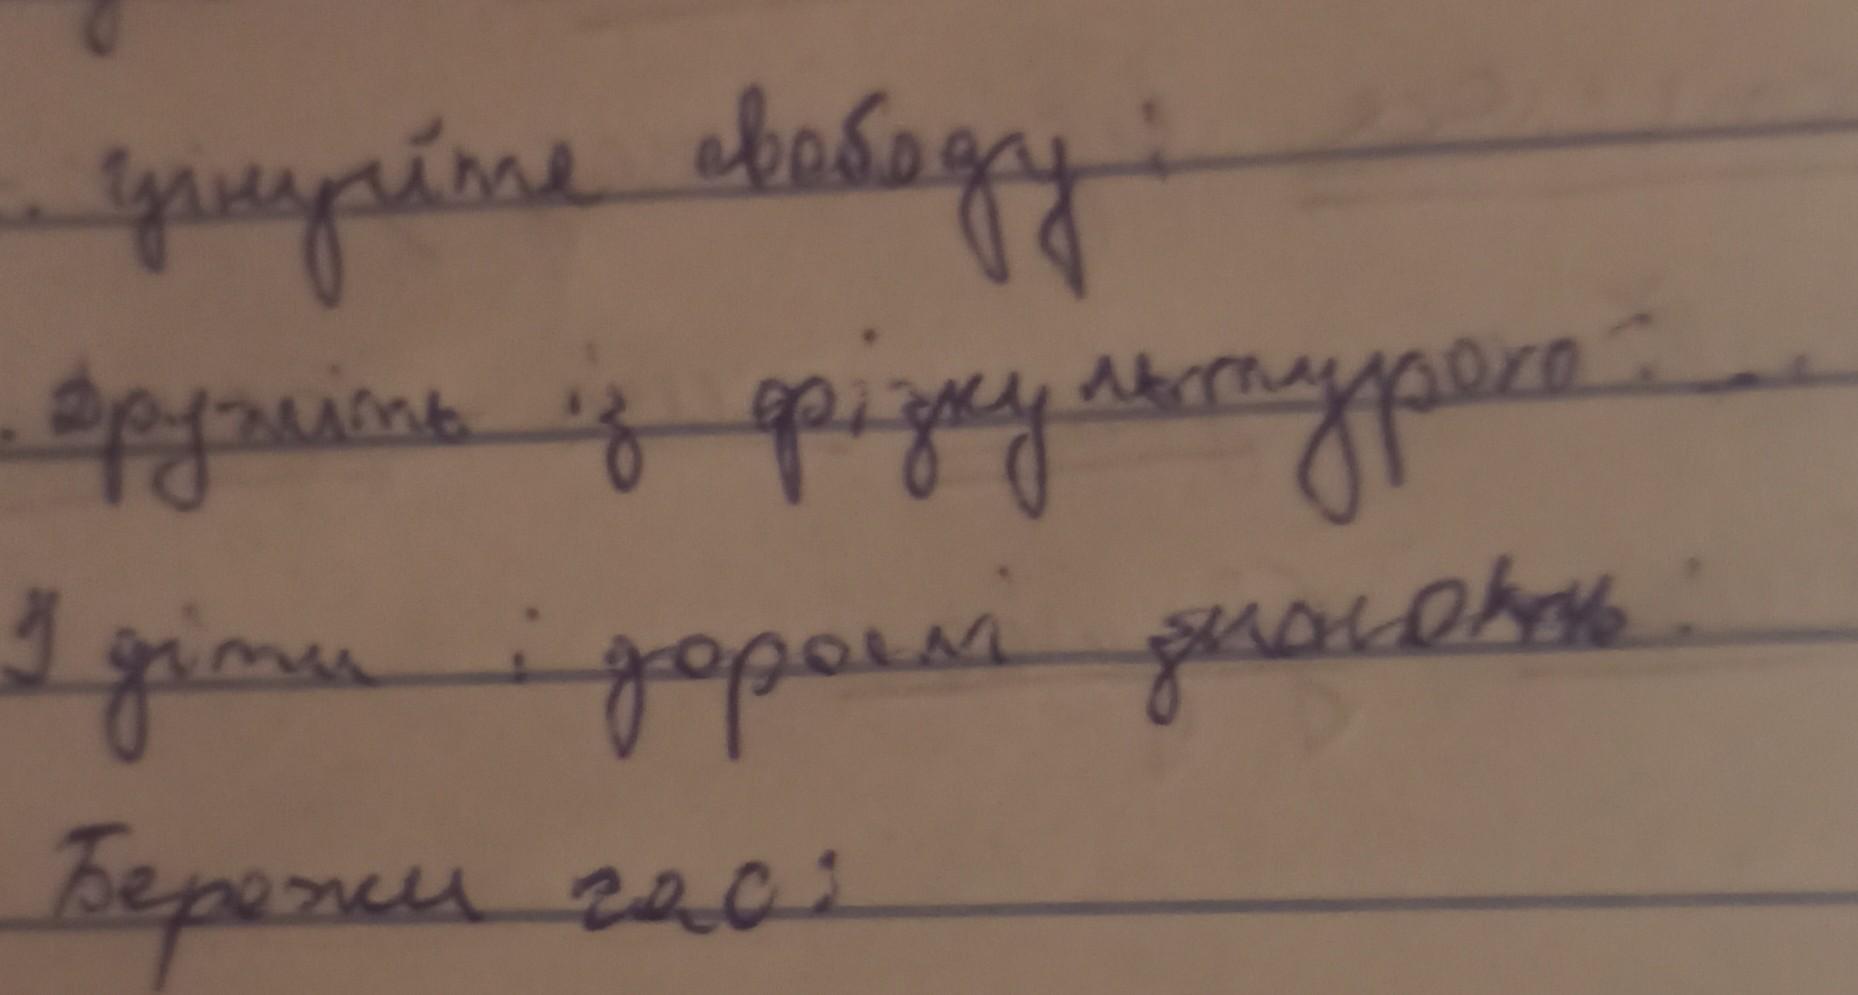 . цінуйте свободу:
. Дружіть із фізкультурою:
І діти і дорослі знають:
Бережи час: